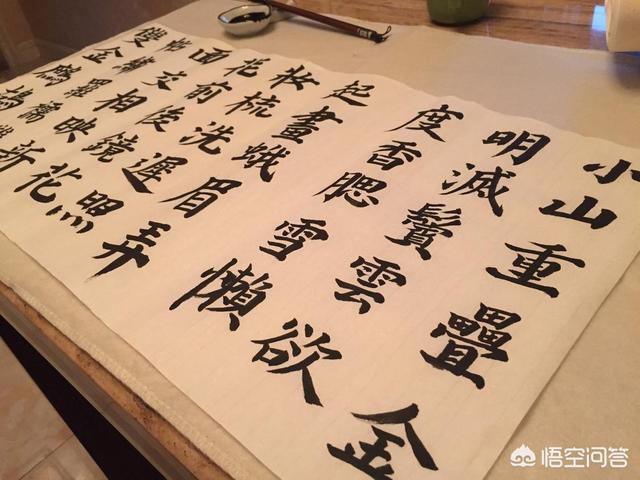 小山重疊金
明滅鬢雲欲
度香腮雪懶
起畫蛾眉弄
妝梳洗遲照
花前後鏡花
面交相映新
帖繡羅襦
雙金鷓
悟空问答